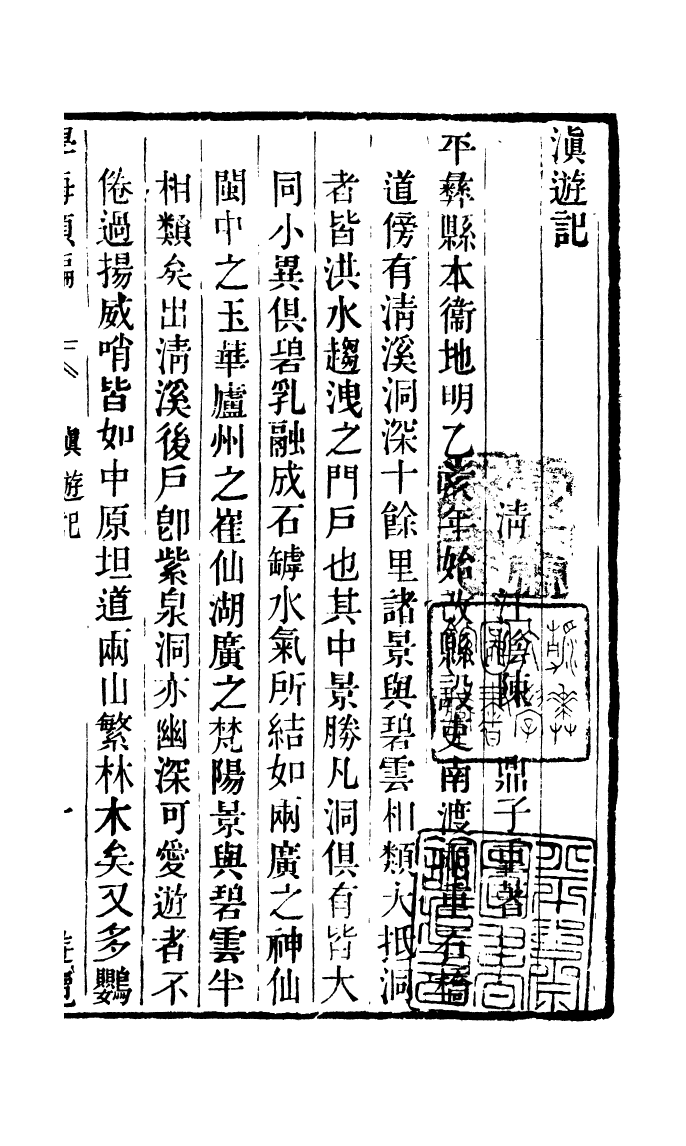 滇遊記
清 江陰陳 鼎子重著
平彝縣本衞地明乙亥年始改縣設吏南渡河車石橋
道傍有清溪洞深十餘里諸景與碧雲相類大抵洞
者皆洪水趨洩之門戶也其中景勝凡洞俱有皆大
同小異俱碧乳融成石罅水氣所結如兩廣之神仙
閩中之玉華廬州之崔仙湖廣之梵陽景與碧雲半
相類矣出清溪後戶卽紫泉洞亦幽深可愛遊者不
倦過揚威哨皆如中原坦道兩山繁林木矣又多鸚
學海類編 滇遊記 一 遊覽